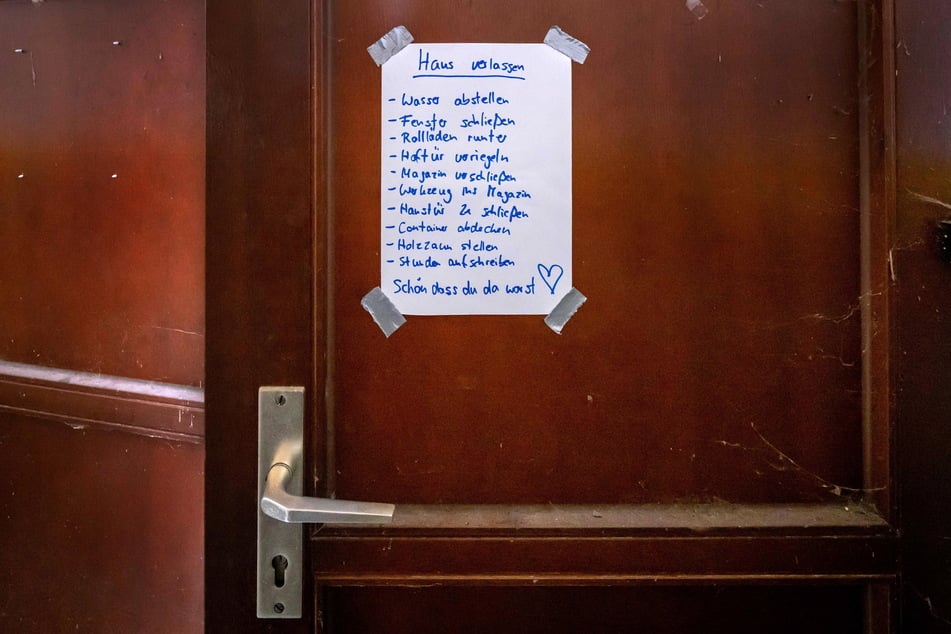 Haus verlassen
- Wasser abstellen
- Fenster schließen
- Rollläden runter
- Hoftür verriegeln
- Magazin verschließen
- Werkzeug ins Magazin
- Haustür zu schließen
- Container abdecken
- Holzzaun stellen
- Stunden aufschreiben
Schön dass du da warst